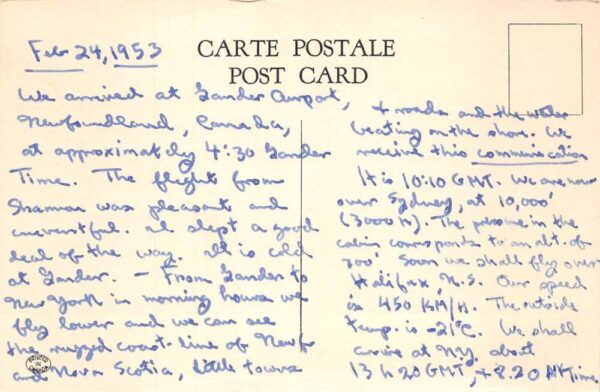 Feb 24, 1953
CARTE POSTALE
POST CARD
We arrived at Gander Airport,
Newfoundland, Canada,
at approximately 4:30 Gander
Time. The flight from
Shannon was pleasant and
uneventful. I slept a good
deal of the way. It is cold
at Gander. — From Gander to
New York in morning hours we
fly lower and we can see
the rugged coast-line of Newf.
and Nova Scotia, little towns
PRINTED IN CANADA
+ roads and the water
beating on the shore. We
receive this communication
It is 10:10 GMT. We are now
over Sydney, at 10,000'
(3000 M). The pressure in the
cabin corresponds to an alt. of
700' Soon we shall fly over
Halifax, N.S. Our speed
is 450 KM/H. The outside
temp. is -21°C. We shall
arrive at N.Y. about
13 h 20 GMT, + 8.20 NY Time